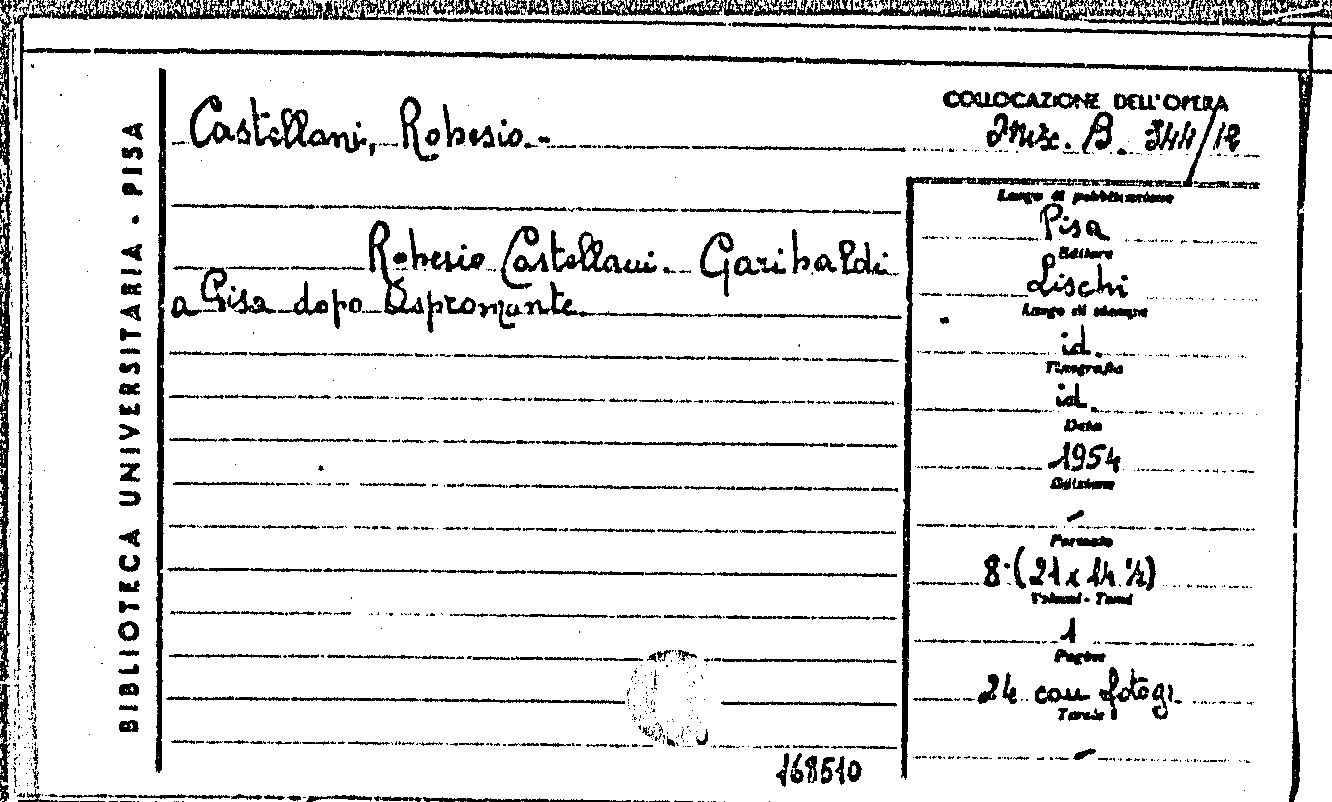 BIBLIOTECA UNIVERSITARIA - PISA
Castellani, Robesio.-
Robesio Castellani. Garibaldi
a Pisa dopo Aspromonte.
168510
COLLOCAZIONE DELL'OPERA
Misc. B. 344/12
Luogo di pubblicazione
Pisa
Editore
Lischi
Luogo di stampa
id.
Tipografia
id.
Data
1954
Edizione
-
Formato
8° (21 x 14 ½)
Volumi - Tomi
1
Pagine
24 con fotogr.
Tavole
-